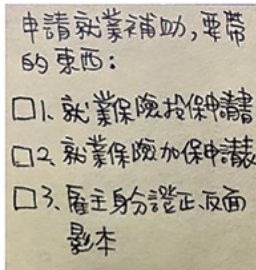 申請就業補助,要帶
的東西:
□1、就業保險投保申請書
□2、就業保險加保申請表
□3、雇主身分證正、反面
影本